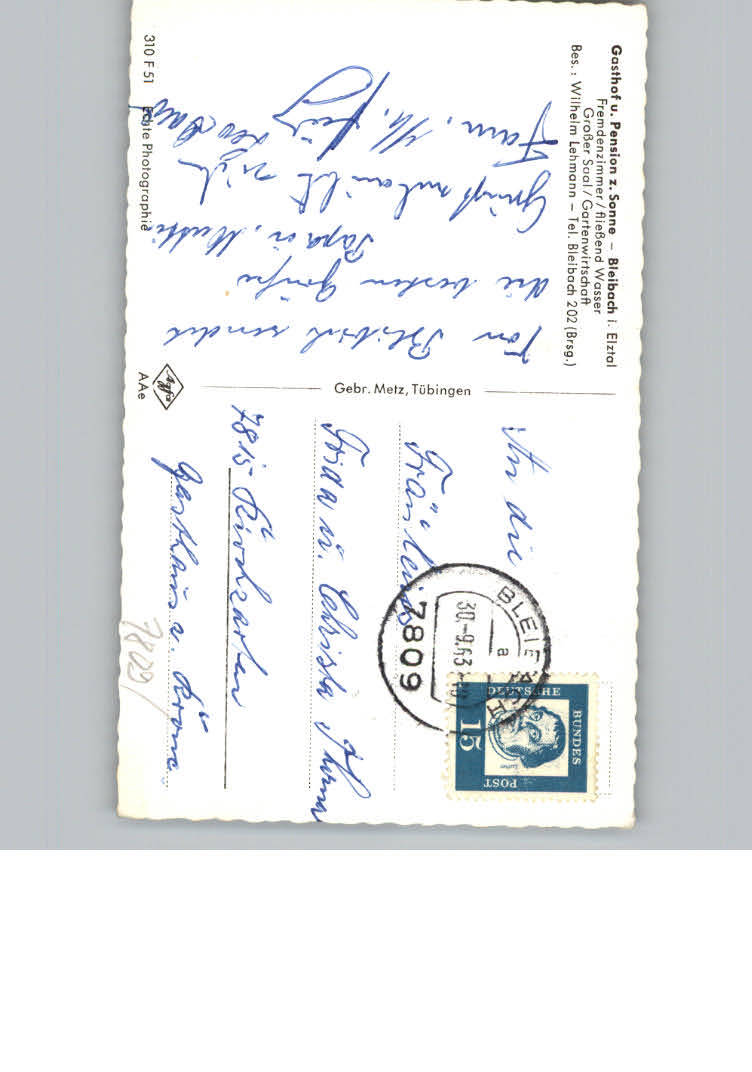 Gasthof u. Pension z. Sonne – Bleibach i. Elztal
Fremdenzimmer / fließend Wasser
Großer Saal / Gartenwirtschaft
Bes.: Wilhelm Lehmann – Tel. Bleibach 202 (Brsg.)
Von Bleibach sendet
die besten Grüße
Papa u. Mutti
Fam.
Gebr. Metz, Tübingen
310 F 51 Echte Photographie
Agfa
AAe
An die
Fräuleins
Frida u. Christa
7815 Kirchzarten
Gasthaus z. Krone
7809
BLEIBACH
a
30.-9.63
7809
DEUTSCHE
BUNDES
POST
15
Luther